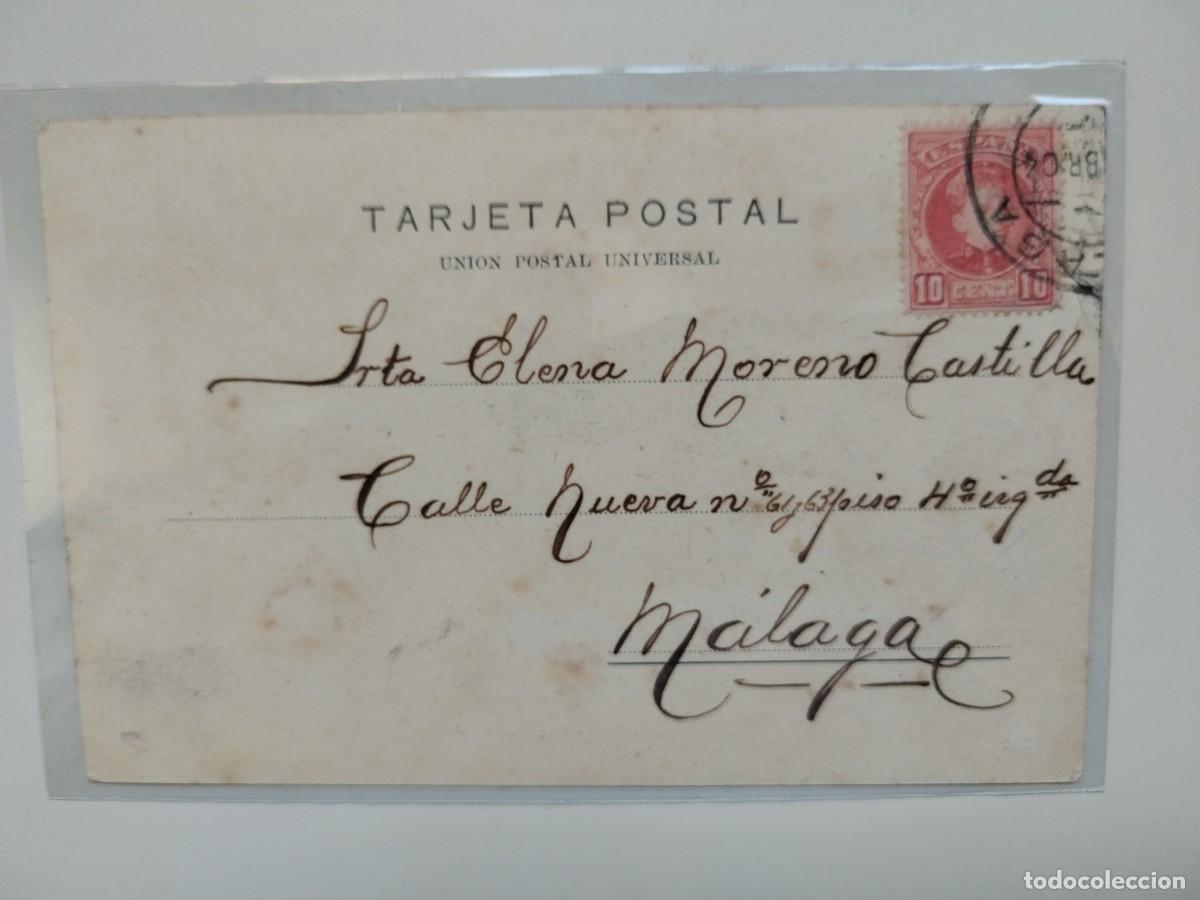 TARJETA POSTAL
UNION POSTAL UNIVERSAL
ESPAÑA
10 CENT. 10
BR 04
AGA
Srta Elena Moreno Castilla
Calle Nueva nº 61 y 63 piso 4º izqda
Málaga
todocoleccion